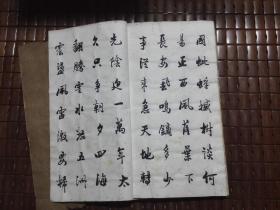 國蚍蜉撼樹談何
易正西風落葉下
長安飛鳴鏑多少
事從來急天地轉
光陰迫一萬年太
久只爭朝夕四海
翻騰雲水怒五洲
震盪風雷激要掃